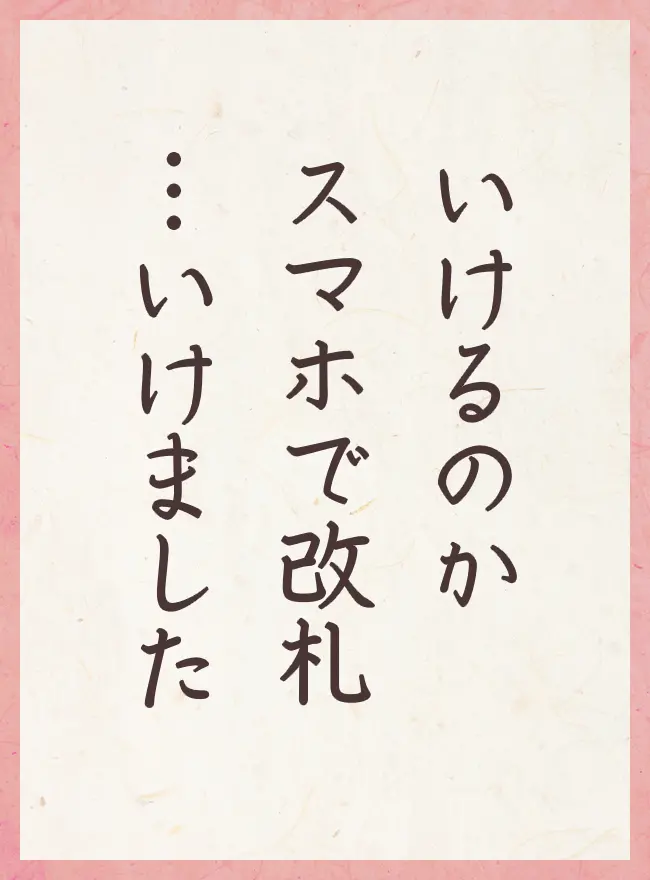 いけるのか
スマホで改札
…いけました